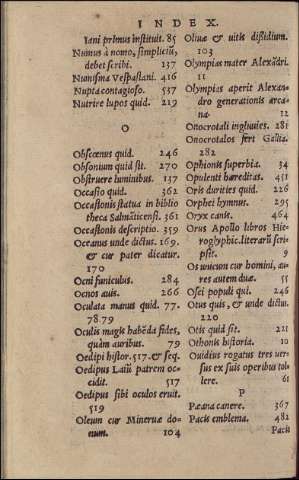 INDEX.
Iani primus instituit. 85
Numus à nomo, simpliciũ,
debet scribi. 137
Numisma Vespasiani. 416
Nupta contagioso. 537
Nutrire lupos quid. 219
O
Obscœnus quid. 246
Obsonium quid sit. 270
Obstruere luminibus. 137
Occasio quid. 362
Occasionis statua in biblio
theca Salmãticensi. 361
Occasionis descriptio. 359
Oceanus unde dictus. 169.
& cur pater dicatur.
170
Ocni funiculus. 284
Ocnos auis. 266
Oculata manus quid. 77.
78.79
Oculis magis habẽda fides,
quàm auribus. 79
Oedipi histor. 517. & seq.
Oedipus Laiũ patrem oc-
cidit. 517
Oedipus sibi oculos eruit.
519
Oleum cur Mineruæ do-
num. 104
Oliuæ & uitis disidium.
103
Olympias mater Alexãdri.
11
Olympias aperit Alexan-
dro generationis arca-
na. 12
Onocrotali ingluuies. 281
Onocrotalos fert Gallia.
282
Ophionis superbia. 34
Opulenti hæreditas. 451
Oris durities quid. 226
Orphei hymnus. 295
Oryx canis. 464
Orus Apollo libros Hie-
roglyphic. literarũ scri-
psit. 9
Os unicum cur homini, au-
res autem duæ. 55
Osci populi qui. 246
Otus quis, & unde dictus.
220
Otis quid sit. 221
Othonis historia. 10
Ouidius rogatus tres uer-
sus ex suis operibus tol-
lere. 61
P
Pæana canere. 367
Pacis emblema. 482
Pacis